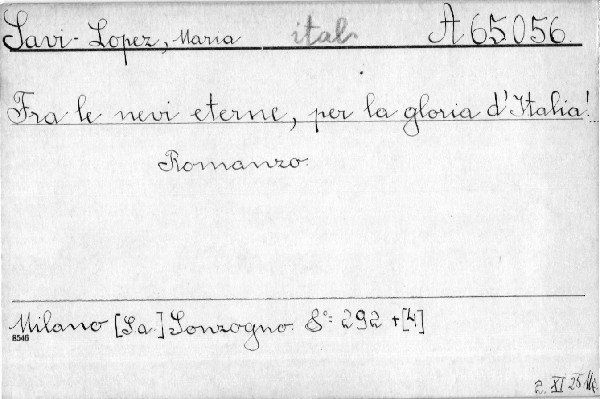 Savi-Lopez, Maria ital. A 65056.
Fra le nevi eterne, per la gloria d'Italia!
Romanzo.
Milano [S.a.] Sonzogno. 8°: 292 + [4]
8546
2. XI 25